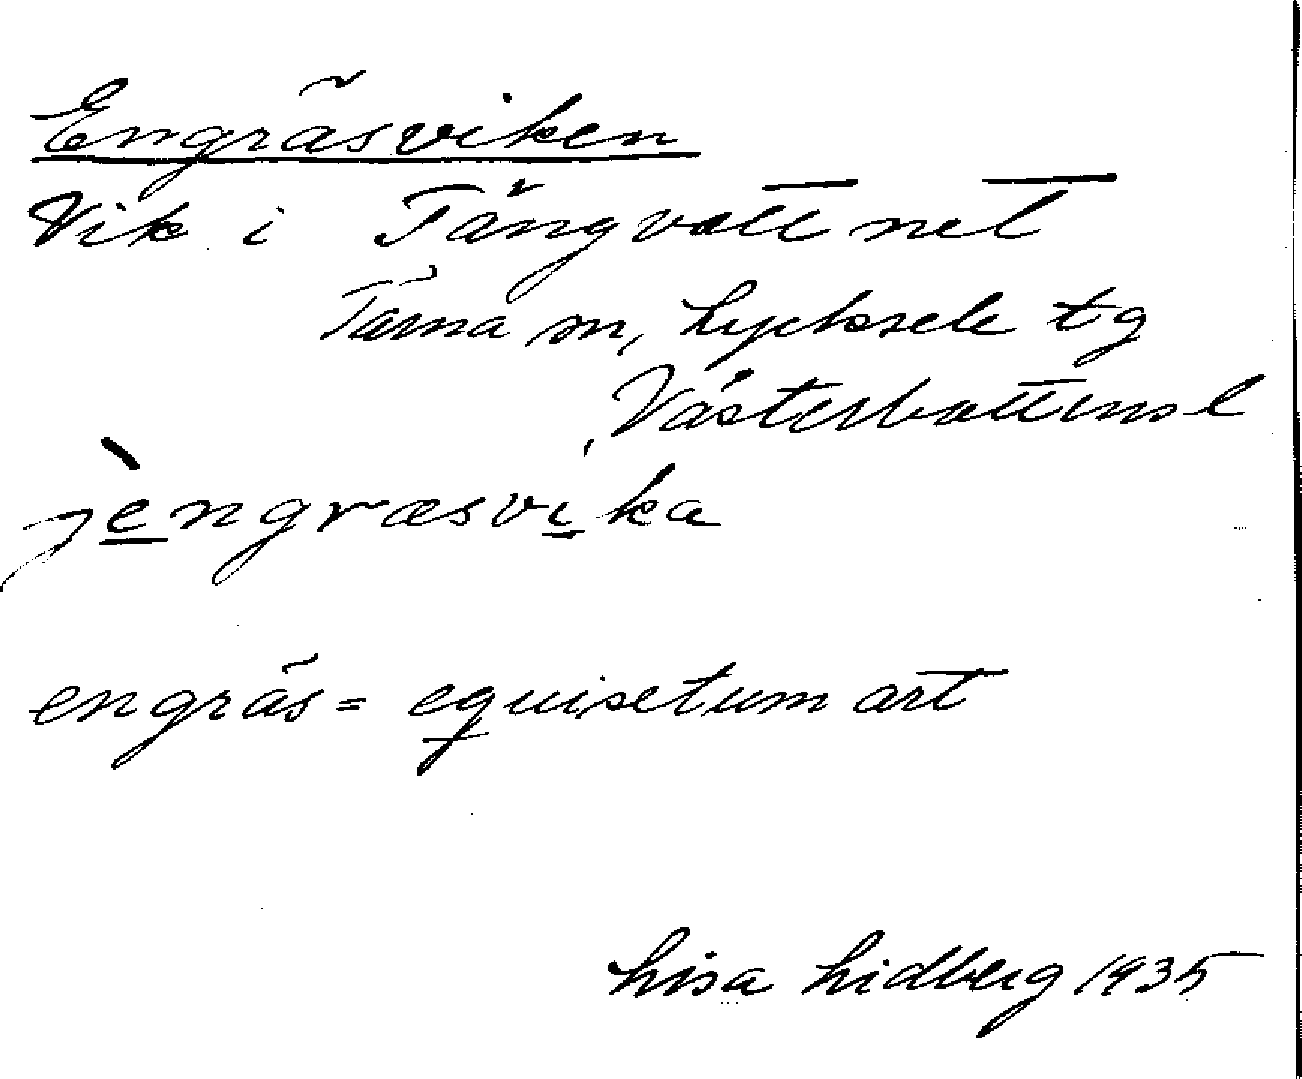 Engräsviken
Vik i Tängvattnet
Tärna sn, Lycksele tg
Västerbottens l
jèngræsvika
engräs = equisetum art
Lisa Lidberg 1935